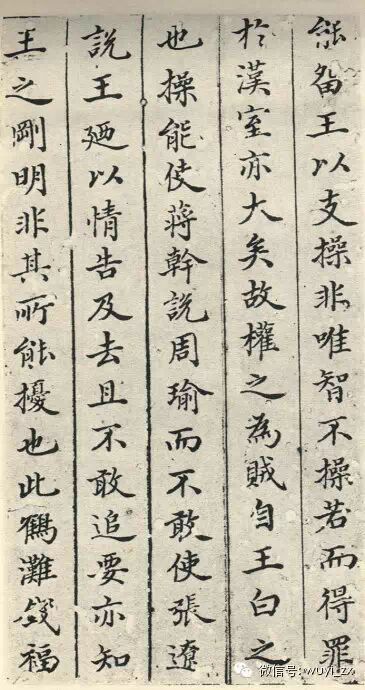 能留王以支操非唯智不操若而得罪
於漢室亦大矣故權之為賊自王白之
也操能使蔣幹說周瑜而不敢使張遼
說王廼以情告及去且不敢追要亦知
王之剛明非其所能擾也此鶴灘錢福
微信号: wuyi_zx